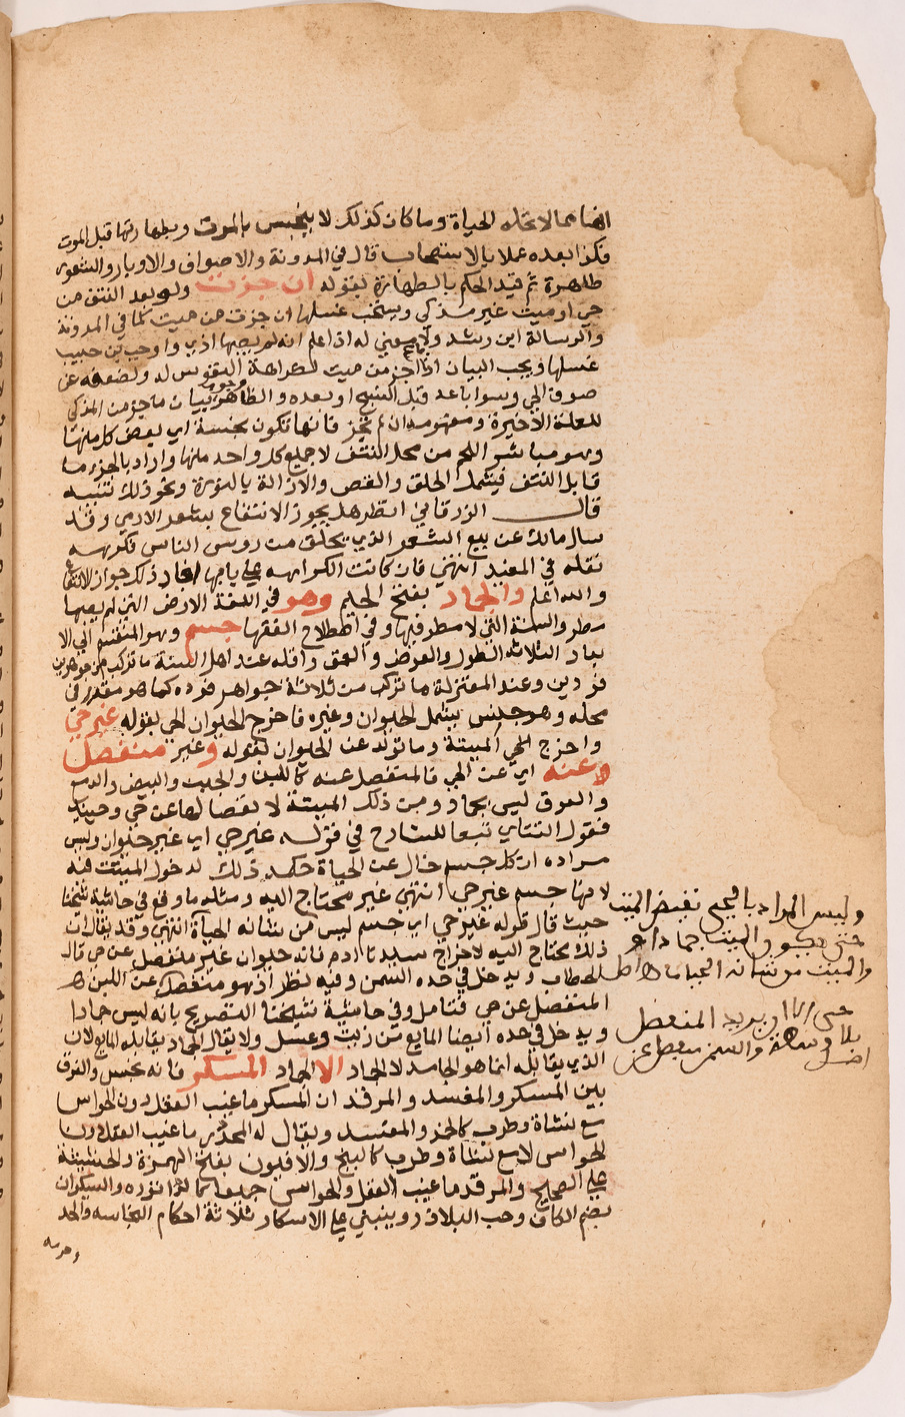 انها مما لا تحله الحياة وما كان كذلك لا ينجس بالموت وبطهارتها قبل الموت
فكذا بعده عملا بالاستصحاب قال في المدونة والاصواف والاوبار والشعور
طاهرة ثم قيد الحكم بالطهارة بقوله ان جزت ولو بعد النتف من
حي او ميت غير مذكي ويستحب غسلها ان جزت من ميت كما في المدونة
والرسالة ابن رشد ولا معني له اذا علم انه لم يصبها اذي واوجب بن حبيب
غسلها ويجب البيان اذا جز من ميت لكراهة النفوس له ولضعفه عن
صوف الحي وسوا باعه قبل النسج او بعده والظاهر وجوب بيان ما جز من المذكي
للعلة الاخيرة ومفهومه ان لم تجز فانها تكون نجسة اي بعض كل منها
وهو مباشر اللحم من محل النتف لا جميع كل واحد منها واراد بالجز ما
قابل النتف فيشمل الحلق والقص والازالة بالنورة ونحو ذلك تنبيه
قال الزرقاني انظر هل يجوز الانتفاع بشعر الادمي وقد
سال مالك عن بيع الشعر الذي يحلق من روس الناس فكرهه
نقله في المفيد انتهي فان كانت الكراهه علي بابها افاد ذلك جواز الانتفاع
والله اعلم والجماد بفتح الجيم وهو في اللغة الارض التي لم يصبها
مطر والسنة التي لا مطر فيها وفي اصطلاح الفقها جسم وهو المنقسم الي الا
بعاد الثلاثة الطول والعرض والعمق واقله عند اهل السنة ما تركب من جوهرين
فردين وعند المعتزلة ما تركب من ثلاثة جواهر فرده كما هو مقرر في
محله وهو جنس يشمل الحيوان وغيره فاخرج الحيوان الحي بقوله غير حي
واخرج الحي الميتة وما تولد عن الحيوان بقوله وغير منفصل
عنه اي عن الحي فالمنفصل عنه كاللبن والحليب والبيض والدمع
والعرق ليس بجماد ومن ذلك الميتة لانفصالها عن حي وحينئذ
فقول التتاي تبعا للشارح في قوله غير حي اي غير حيوان وليس
مراده ان كل جسم خال عن الحياة حكمه ذلك لدخول الميتة فيه
لانها جسم غير حي انتهي غير محتاج اليه ومثله ما وقع في حاشية شيخنا
حيث قال قوله غير حي اي جسم ليس من شانه الحياة انتهي وقد يقال ان
ذلك يحتاج اليه لاخراج سيدنا ادم فانه حيوان غير منفصل عن حي قال
الحطاب ويدخل في حده السمن وفيه نظر اذ هو منفصل عن اللبن
المنفصل عن حي فتامل وفي حاشية شيخنا التصريح بانه ليس جمادا
ويدخل في حده ايضا المايع من زيت وعسل ولا يقال الجماد يقابله المايع لان
الذي يقابله انما هو الجامد لا الجماد الا الجماد المسكر فانه نجس والفرق
بين المسكر والمفسد والمرقد ان المسكر ما غيب العقل دون الحواس
مع نشاة وطرب كالخمر والمفسد ويقال له المخدر ما غيب العقل دون
الحواس لا مع نشاة وطرب كالبنج والافيون بفتح الهمزة والحشيشة
علي الصحيح والمرقد ما غيب العقل والحواس جميعا كالداتوره والسيكران
بضم الكاف وحب البلاذر وينبني علي الاسكار ثلاثة احكام النجاسه والحد
وحرمه
وليس المراد بالحي نقيض الميت
حتي يكون الميت جمادا
والميت من شانه الحياة
يريد المنفصل
والسمن منفصل عن